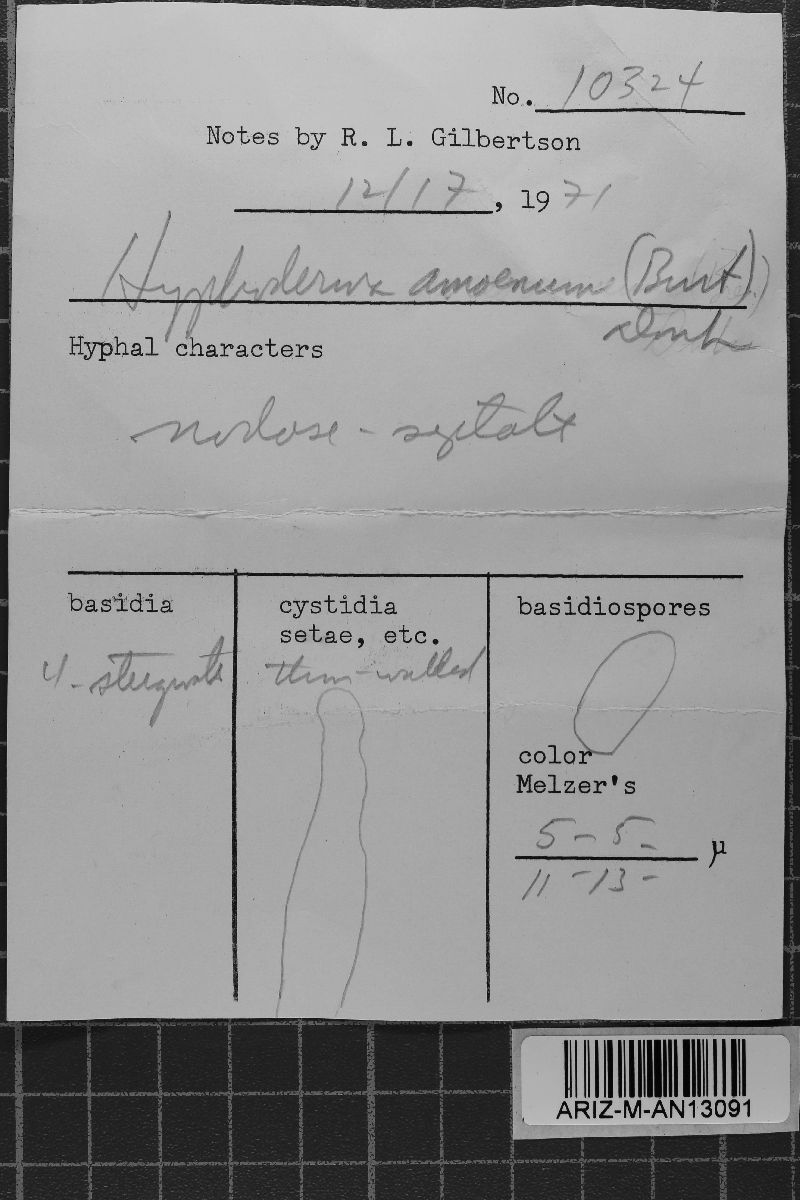 No. 10324
Notes by R. L. Gilbertson
12/17, 1971
Hyphoderma amoenum (Burt)
Donk
Hyphal characters
nodose-septate
basidia
4-sterigmate
cystidia
setae, etc.
thin-walled
basidiospores
color
Melzer's
5-5-
11-13- µ
ARIZ-M-AN13091